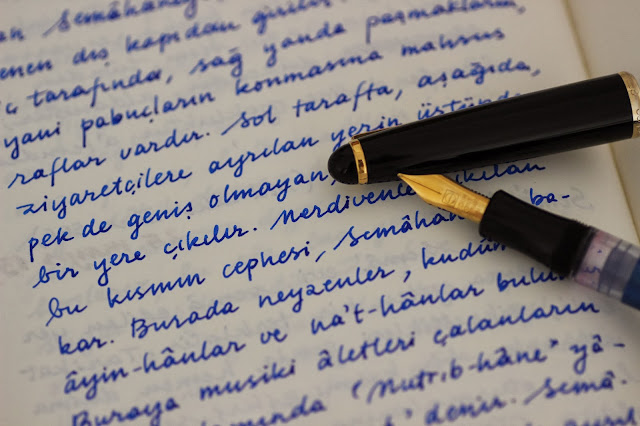 Semâhaneye
enen dış kapıdan giriliş
ç tarafında, sağ yanda paşmakların,
yani pabuçların konmasına mahsus
raflar vardır. Sol tarafta, aşağıda,
ziyaretçilere ayrılan yerin üstünde
pek de geniş olmayan,
bir yere çıkılır. Merdivenle çıkılan
bu kısmın cephesi, Semâhaneye ba-
kar. Burada neyzenler, kudüm
âyin-hânlar ve na't-hânlar bulunur.
Buraya musiki âletleri çalanların
"Mutrıb-hâne" yâ-
denir. Semâ-